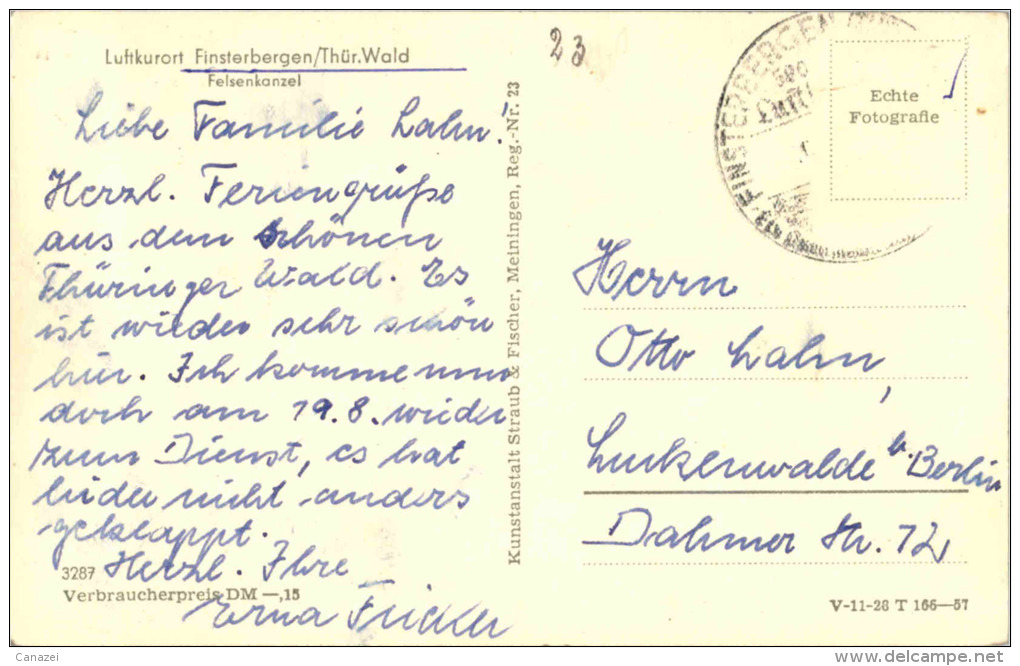 Luftkurort Finsterbergen/Thür.Wald
Felsenkanzel
23
Liebe Familie Lahn!
Herzl. Feriengrüße
aus dem schönen
Thüringer Wald. Es
ist wieder sehr schön
hier. Ich komme nun
doch am 19.8. wieder
zum Dienst, es hat
leider nicht anders
geklappt.
Herzl. Ihre
Erna
3287
Verbraucherpreis DM —,15
Kunstanstalt Straub & Fischer, Meiningen, Reg.-Nr. 23
FINSTERBERGEN
Echte
Fotografie
Herrn
Otto Lahn,
Luckenwalde b. Berlin
Dahmer Str. 72
V-11-28 T 166—57
Canazei
delcampe.net